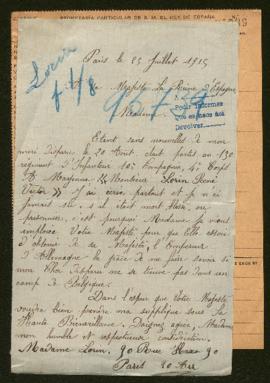 SECRETARÍA PARTICULAR DE S. M. EL REY DE ESPAÑA
Paris le 25 Juillet 1915
Lorin
f 4/8
Majesté La Reine d'Espagne
Madame
Para informes
Devolver
Etant sans nouvelles de mon
mari disparu le 20 Août étant parti au 130
régiment d'Infanterie 10e Compagnie, 4e Corps
Mayenne Monsieur Lorin René
Victor J'ai écrit partout et je n'ai
jamais su, s'il était mort ou
prisonnier, c'est pourquoi Madame je viens
implorer Votre Majesté pour que Elle essaie
d'obtenir de sa Majesté, l'Empereur
d'Allemagne la grâce de me faire savoir si
mon cher disparu ne se trouve pas dans un
camp de Belgique.
Dans l'espoir que Votre Majesté
voudra bien prendre ma supplique sous Sa
Haute Bienveillance. Daignez agréer, Madame
mon humble et respectueuse considération.
Madame Lorin, 90 Rue 90
Paris 20 Arr